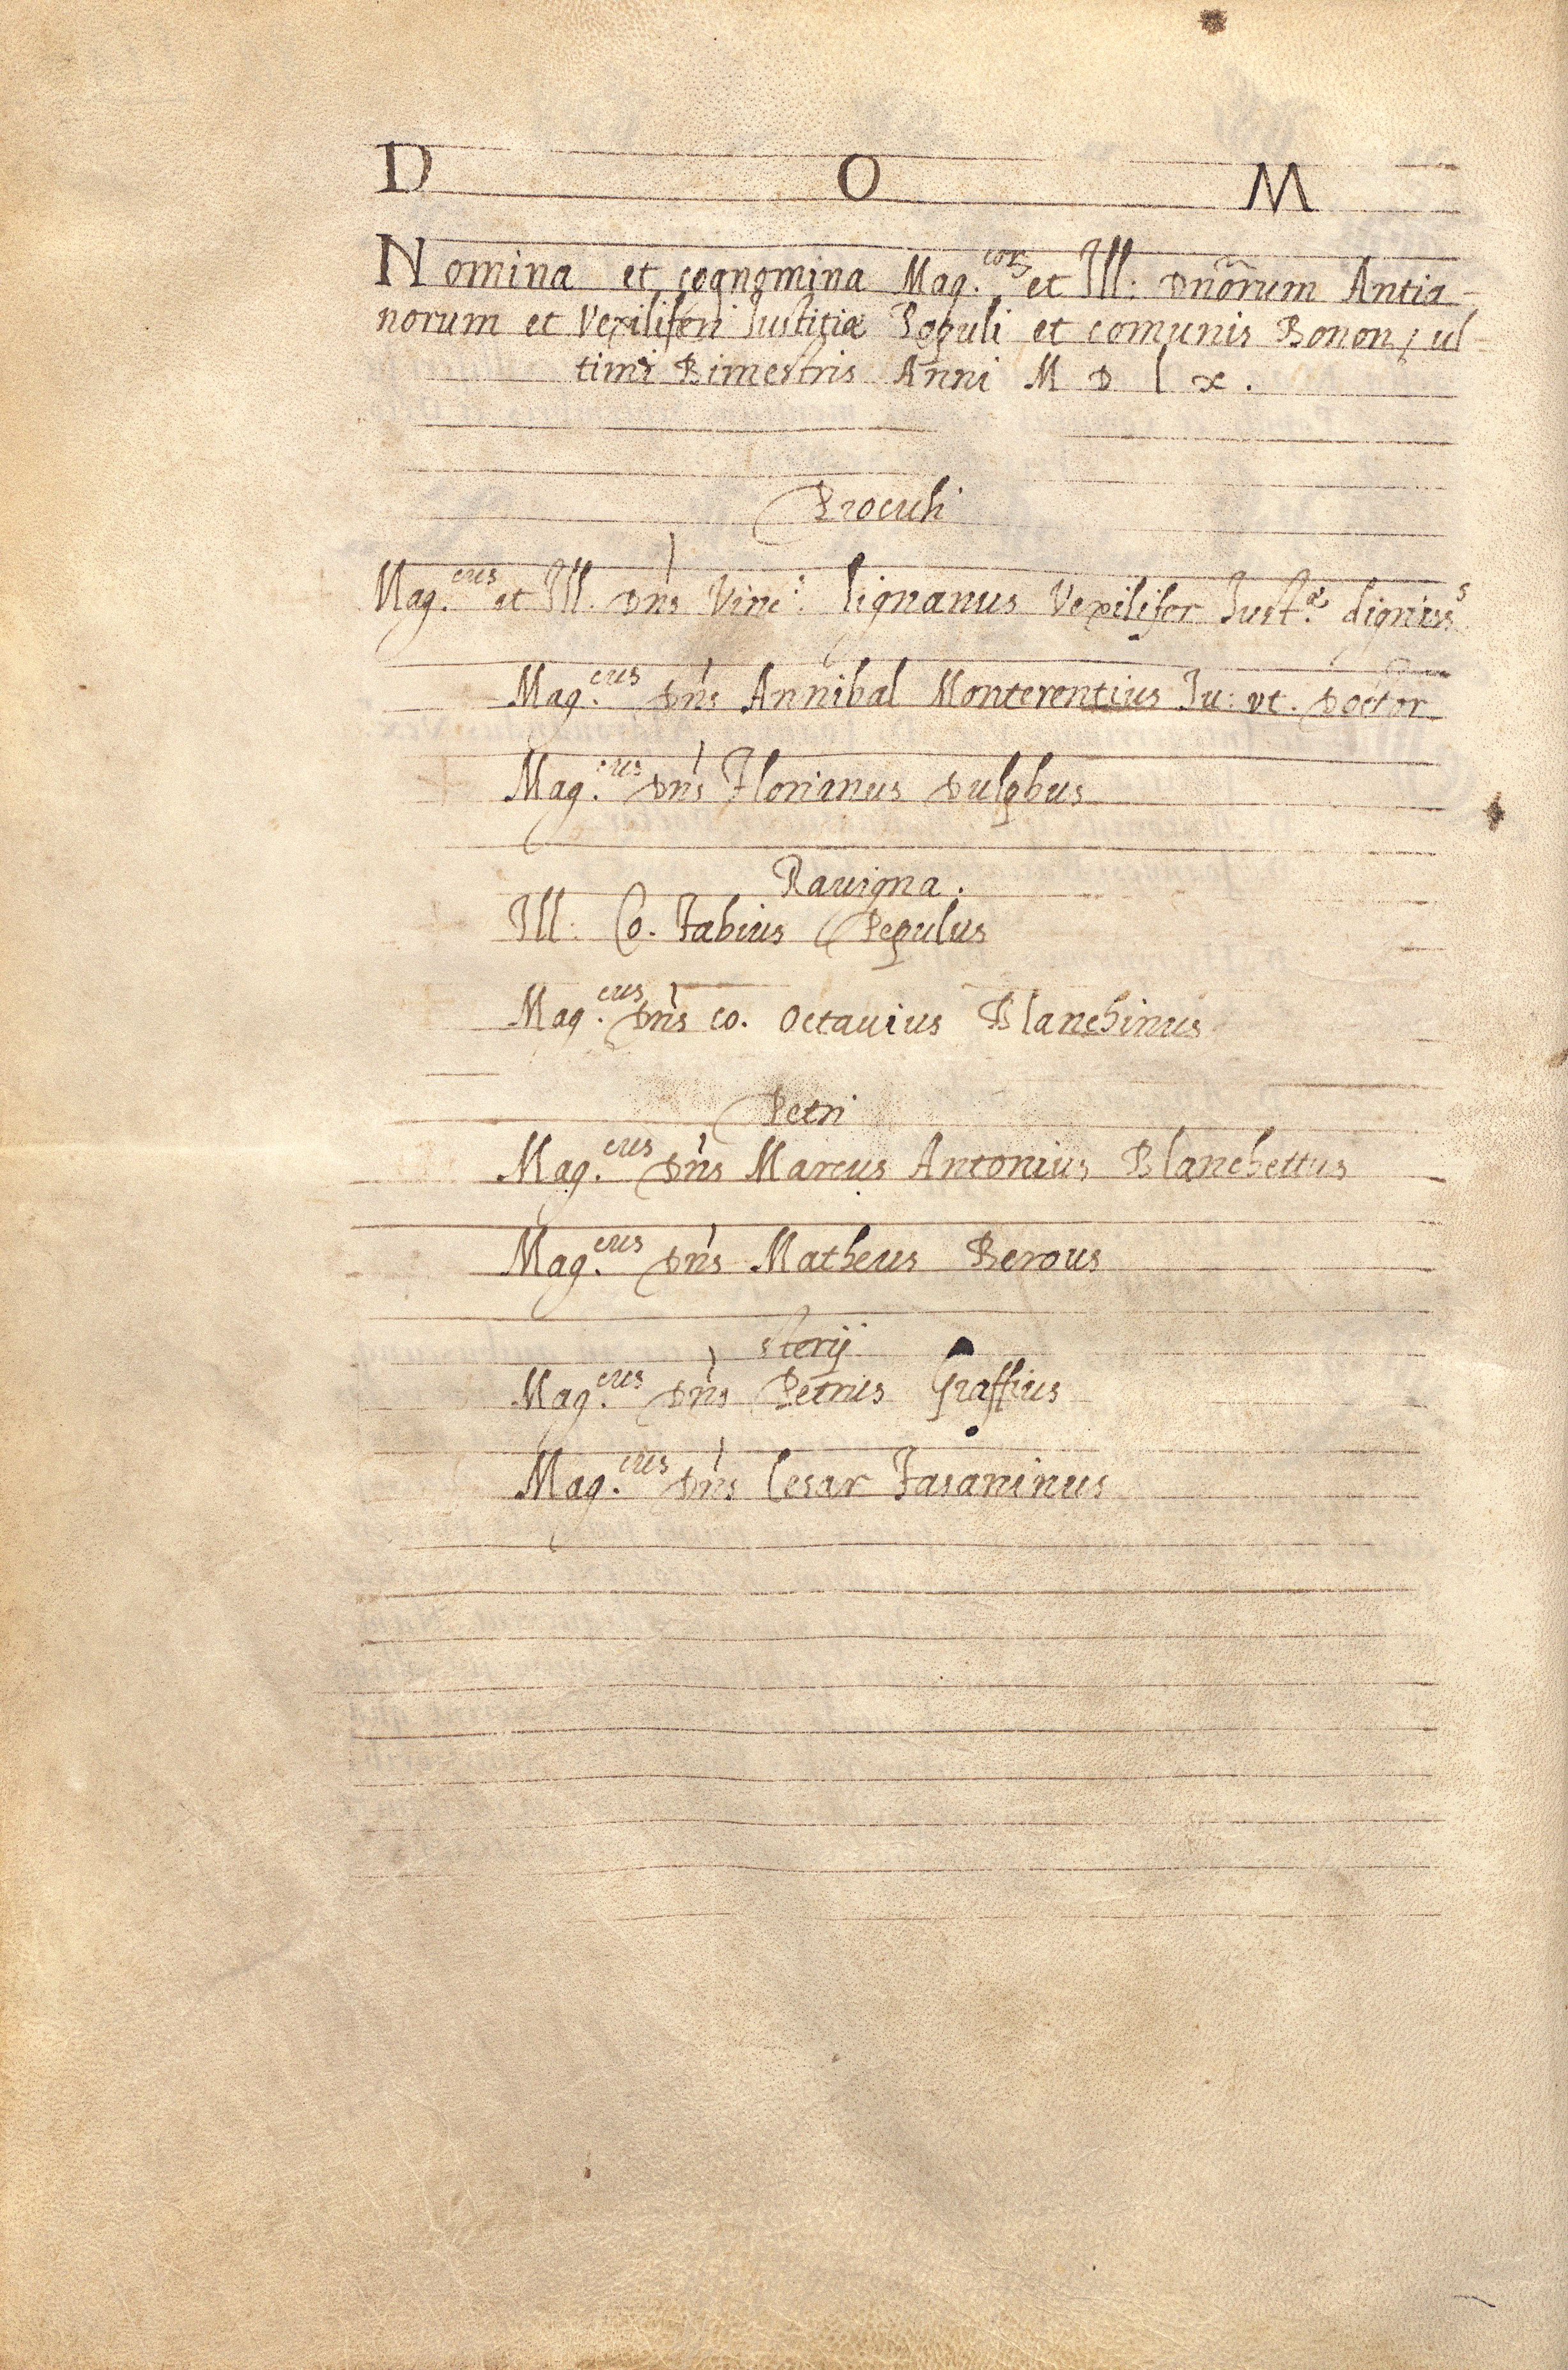 D O M
Nomina et cognomina Mag.corum et Ill: Dnorum Antia-
norum et Vexiliferi Iustitiæ Populi et comunis Bonon; ul=
timi Bimestris Anni M D l x .
Proculi
Mag.cus et Ill. Dns Vinc: Lignanus Vexilifer Just.æ digniss.s
Mag.cus Dns Annibal Monterentius Ju: ut. Doctor
Mag.cus Dns Florianus Dulphus
Ravigna.
Ill: Co. Fabius Pepulus
Mag.cus Dns co. Octavius Blanchinus
Petri
Mag.cus Dns Marcus Antonius Blanchettus
Mag.cus Dns Matheus Berous
sterij
Mag.cus Dns Petrus Graffius
Mag.cus Dns Cesar Fasaninus